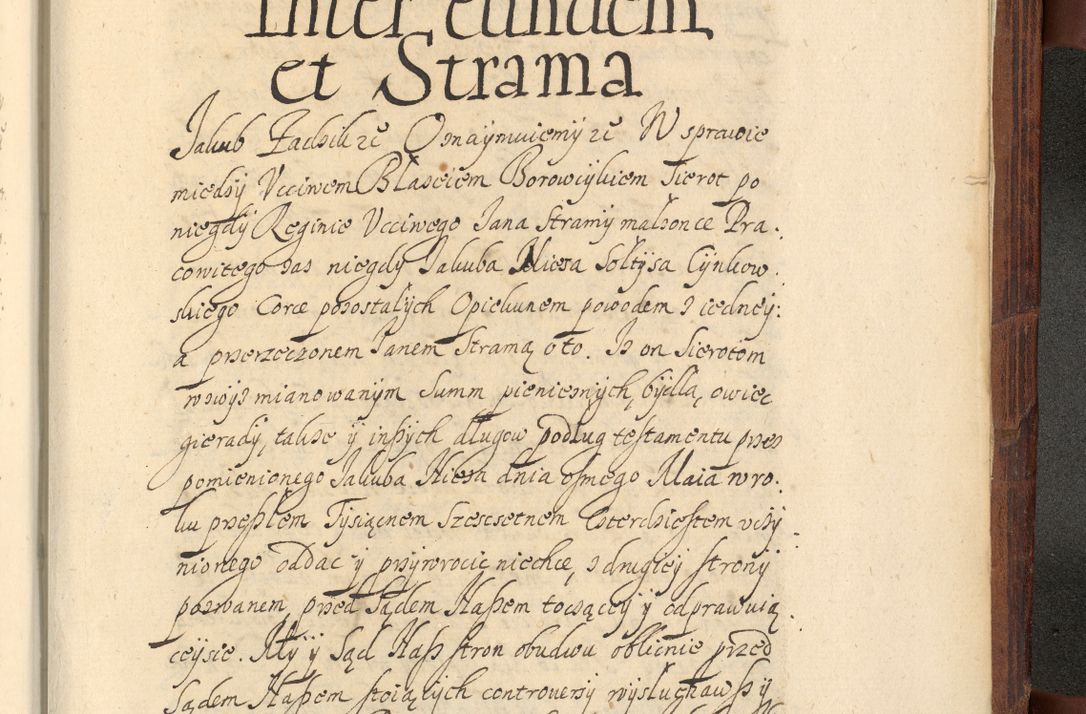 Inter eundem
et Strama
Jakub Zadzik etc Oznaymuiemy etc W sprawie
miedzy Vcciwem Błazeiem Borowcykiem Sierot po
niegdy Reginie Vcciwego Jana Stramy małzonce Pra:
cowitego zas niegdy Jakuba Niesa Sołtysa Cynkow:
skiego Corce pozostałych Opiekunem powodem z iedney:
a przerzeczonem Janem Stramą o to. Iz on Sierotom
wzwyz mianowanym Summ pienieznych, bydła, owiec
gierady, takze y inßych długow podług testamentu przez
pomienionego Jakuba Niesa dnia osmego Maia w ro:
ku przeßłem Tysiącnem Szescsetnem Czterdziestem vczy:
nionego oddac y przywrocic niechce, z drugiey strony
pozwanem, przed Sądem Naßem toczącey y odprawuią:
ceysie. My y Sąd Naß stron obudwu oblicnie przed
Sądem Naßem stoiących controversy wysłuchawßy